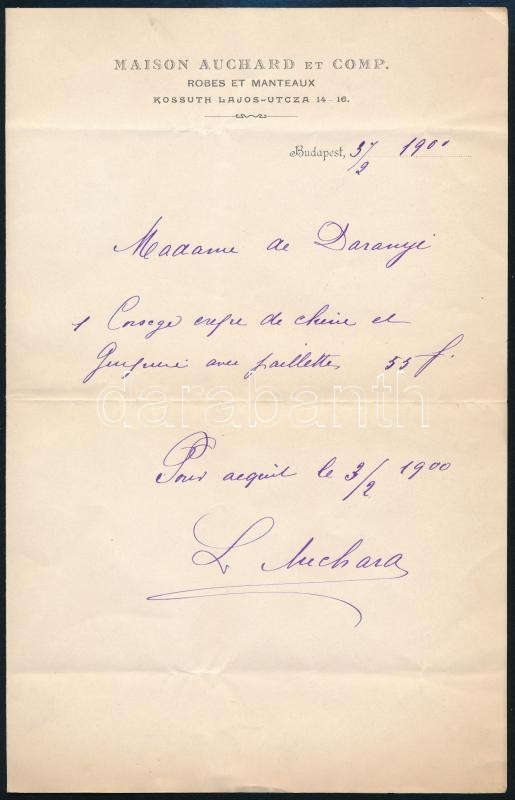 MAISON AUCHARD ET COMP.
ROBES ET MANTEAUX
KOSSUTH LAJOS-UTCZA 14-16.
Budapest, 3/2 1900
Madame de Daranyi
1 Corsage crepe de chine et
avec paillettes 55 f.
darabanth
Pour acquit le 3/2 1900
L Auchard